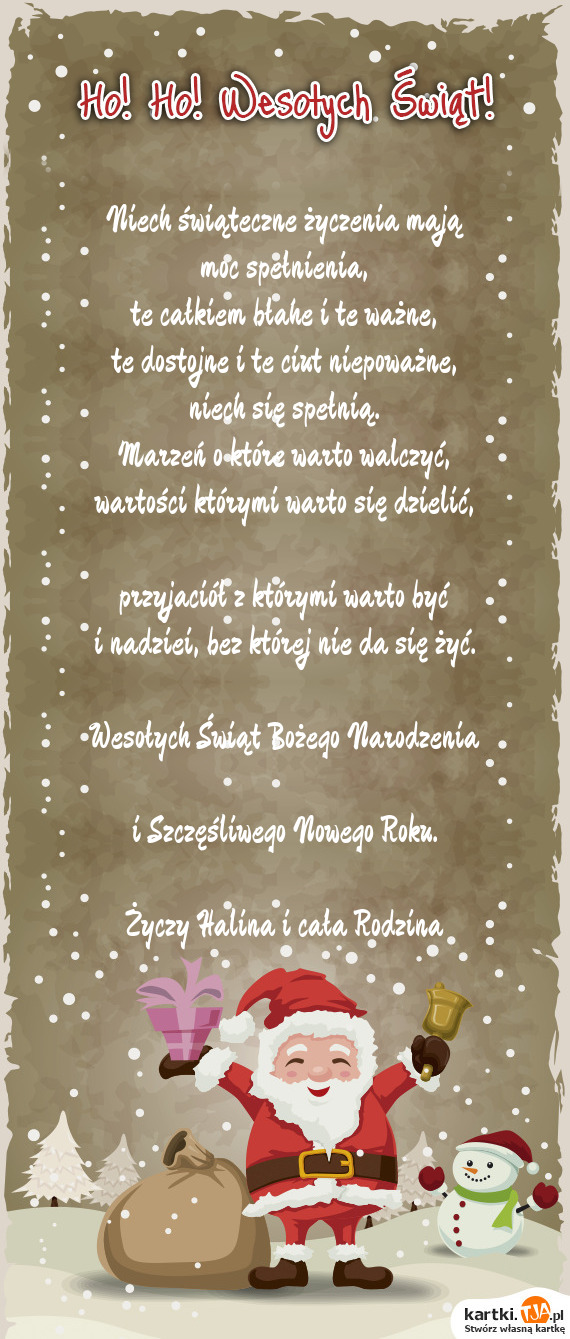 Ho! Ho! Wesołych Świąt!
Niech świąteczne życzenia mają
moc spełnienia,
te całkiem błahe i te ważne,
te dostojne i te ciut niepoważne,
niech się spełnią.
Marzeń o które warto walczyć,
wartości którymi warto się dzielić,
przyjaciół z którymi warto być
i nadziei, bez której nie da się żyć.
Wesołych Świąt Bożego Narodzenia
i Szczęśliwego Nowego Roku.
Życzy Halina i cała Rodzina
kartki.TJA.pl
Stwórz własną kartkę